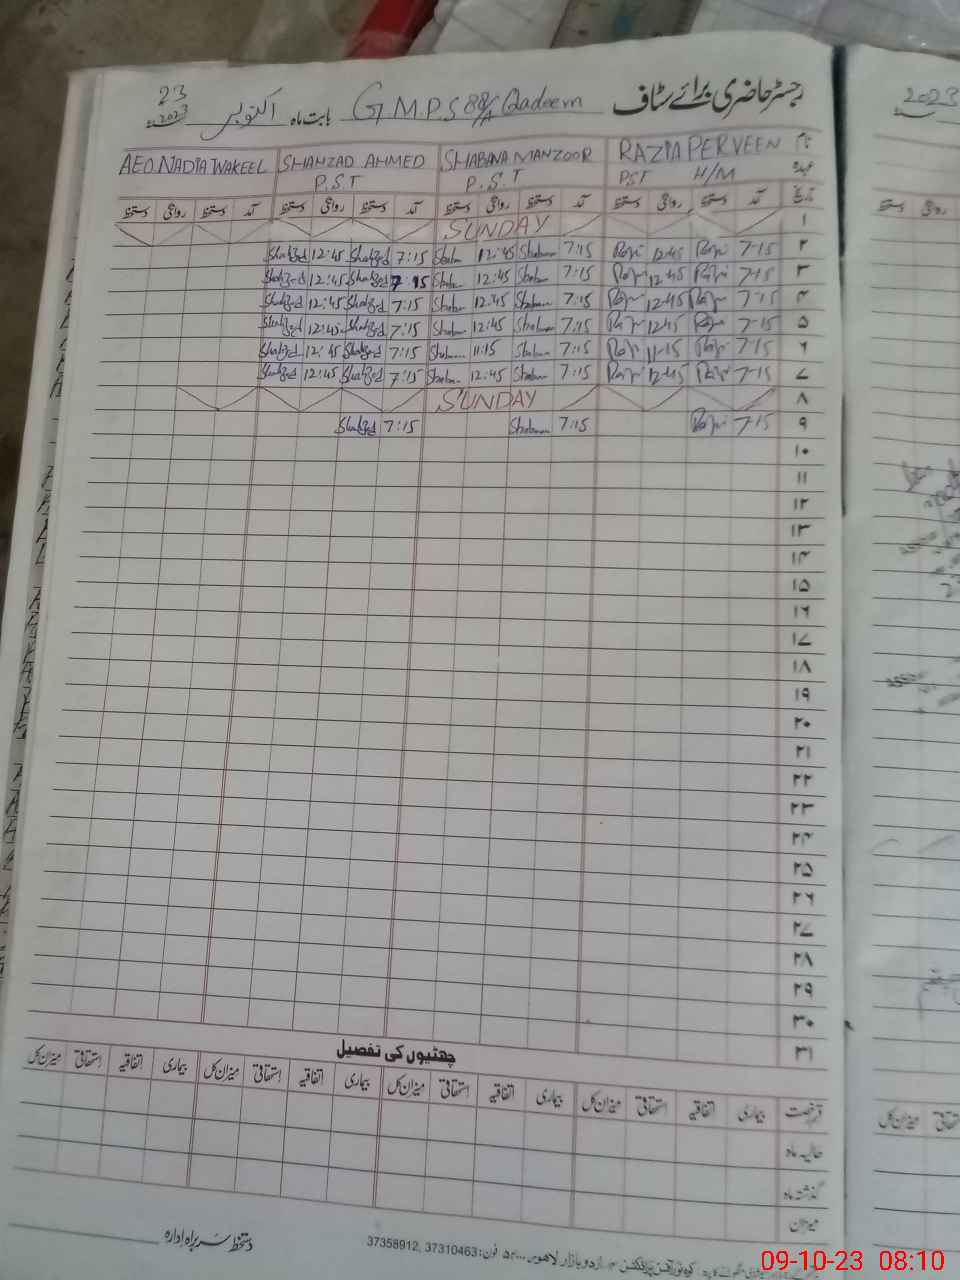 رجسٹر حاضری برائے سٹاف G.M.P.S 88/A Qadeem بابت ماہ اکتوبر 2023 23
نام RAZIA PERVEEN SHABANA MANZOOR SHAHZAD AHMED AEO. NADIA WAKEEL
عہدہ H/M PST P.S.T P.S.T
تاریخ آمد دستخط روانگی دستخط آمد دستخط روانگی دستخط آمد دستخط روانگی دستخط آمد دستخط روانگی دستخط
۱ SUNDAY
۲ 7-15 Razi 12:45 Razi 7:15 Shabana 12:45 Shaban 7:15 Shahzad 12:45 Shahzad
۳ 7-15 Razi 12:45 Razi 7:15 Shabana 12:45 Shaban 7:15 Shahzad 12:45 Shahzad
۴ 7-15 Razi 12:45 Razi 7:15 Shabana 12:45 Shaban 7:15 Shahzad 12:45 Shahzad
۵ 7-15 Razi 12:45 Razi 7:15 Shabana 12:45 Shaban 7:15 Shahzad 12:45 Shahzad
۶ 7-15 Razi 11-15 Razi 7:15 Shabana 11:15 Shabana 7:15 Shahzad 12:45 Shahzad
۷ 7-15 Razi 12:45 Razi 7:15 Shabana 12:45 Shaban 7:15 Shahzad 12:45 Shahzad
۸ SUNDAY
۹ 7-15 Razi 7:15 Shabana 7:15 Shahzad
۱۰
۱۱
۱۲
۱۳
۱۴
۱۵
۱۶
۱۷
۱۸
۱۹
۲۰
۲۱
۲۲
۲۳
۲۴
۲۵
۲۶
۲۷
۲۸
۲۹
۳۰
۳۱
چھٹیوں کی تفصیل
قسم رخصت بیماری اتفاقیہ استحقاقی میزان کل بیماری اتفاقیہ استحقاقی میزان کل بیماری اتفاقیہ استحقاقی میزان کل بیماری اتفاقیہ استحقاقی میزان کل
حالیہ ماہ
گذشتہ ماہ
میزان
دستخط سربراہ ادارہ
اردو بازار لاہور فون: 37310463, 37358912
2023
دستخط روانگی
استحقاقی میزان کل
09-10-23 08:10